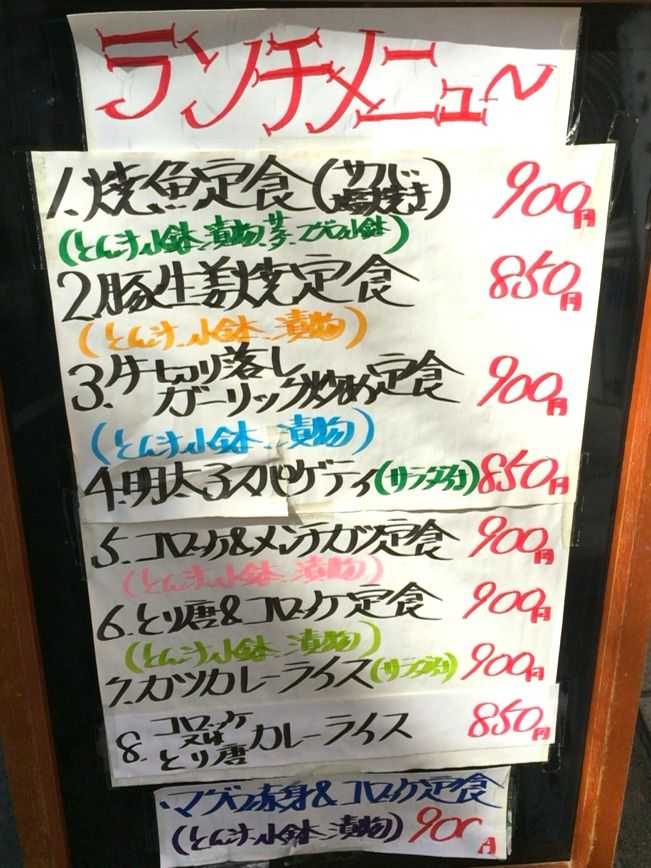 ランチメニュ〜
1.焼魚定食(サバ塩焼き) 900円
(とん汁.小鉢.漬物.
2.豚生姜焼定食 850円
(とん汁.小鉢.漬物)
3.牛切り落し
ガーリック炒め定食 900円
(とん汁.小鉢.漬物)
4.明太子スパゲティ(サラダ付) 850円
5.コロッケ&メンチカツ定食 900円
(とん汁.小鉢.漬物)
6.とり唐&コロッケ定食 900円
(とん汁.小鉢.漬物)
7.カツカレーライス(サラダ付) 900円
8.コロッケ又はとり唐カレーライス 850円
マグロ赤身&コロッケ定食
(とん汁.小鉢.漬物) 900円